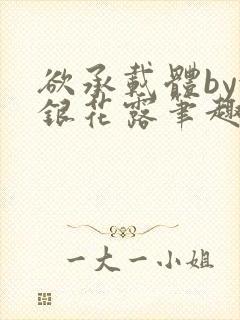 欲承載體by
銀花露筆趣
一大一小姐